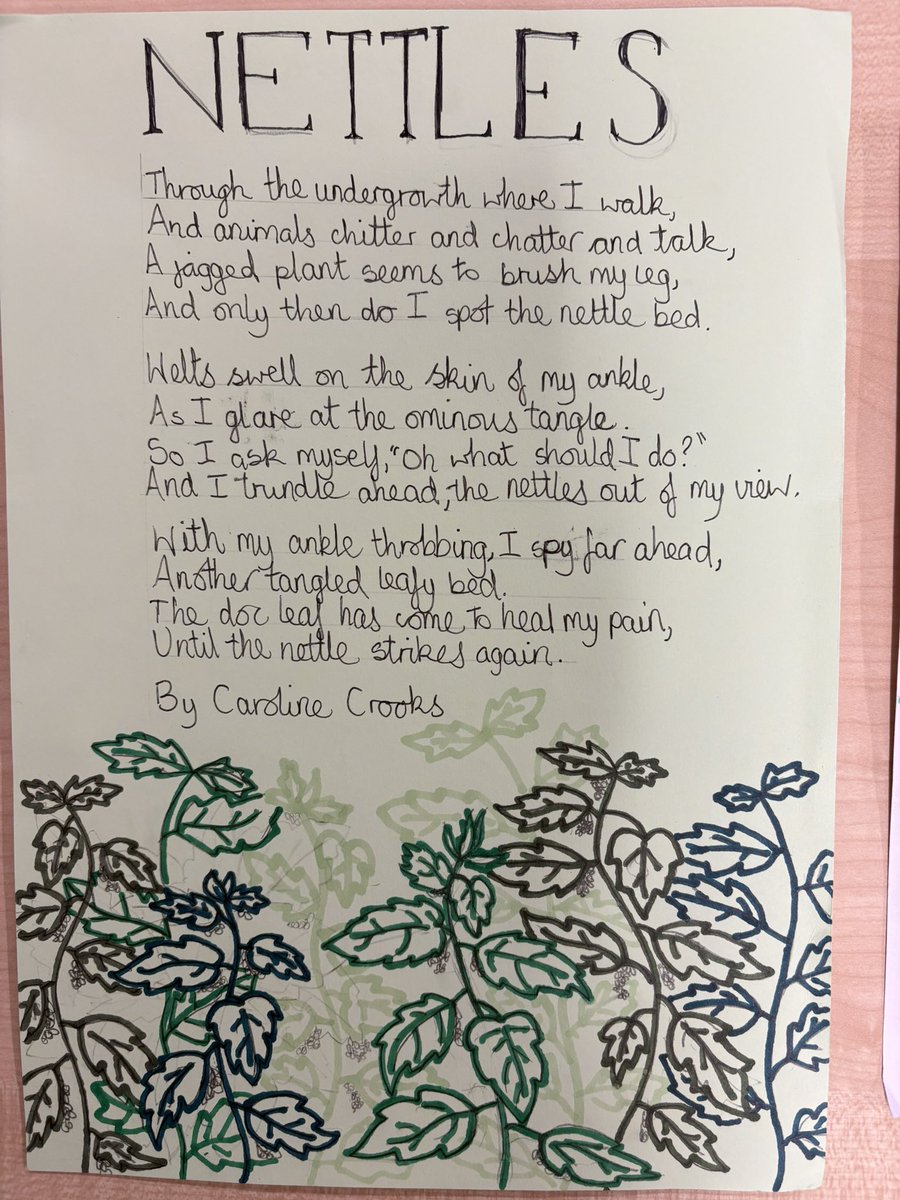 NETTLES
Through the undergrowth where I walk,
And animals chitter and chatter and talk,
A jagged plant seems to brush my leg,
And only then do I spot the nettle bed.
Welts swell on the skin of my ankle,
As I glare at the ominous tangle.
So I ask myself, "Oh what should I do?"
And I trundle ahead, the nettles out of my view.
With my ankle throbbing, I spy far ahead,
Another tangled leafy bed.
The doc leaf has come to heal my pain,
Until the nettle strikes again.
By Caroline Crooks